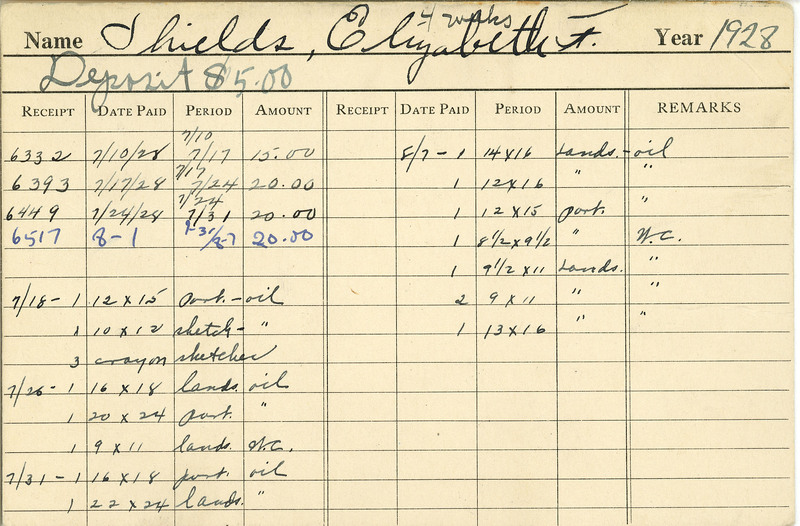 4 weeks
Name Shields, Elizabeth F. Year 1928
Deposit $5.00
RECEIPT DATE PAID PERIOD AMOUNT RECEIPT DATE PAID PERIOD AMOUNT REMARKS
7/10
6332 7/10/28 7/17 15.00 8/7-1 14x16 Lands.-oil
7/17
6393 7/17/28 7/24 20.00 1 12x16 " "
7/24
6449 7/24/28 7/31 20.00 1 12x15 port. "
6517 8-1 7-31/8-7 20.00 1 8 1/2 x 9 1/2 " W.C.
1 9 1/2 x 11 Lands. "
7/18-1 12x15 port.-oil 2 9x11 " "
1 10x12 sketch-" 1 13x16 " "
3 crayon sketches
7/26-1 16x18 lands. oil
1 20x24 port. "
1 9x11 lands. W.C.
7/31-1 16x18 port. oil
1 22x24 lands. "